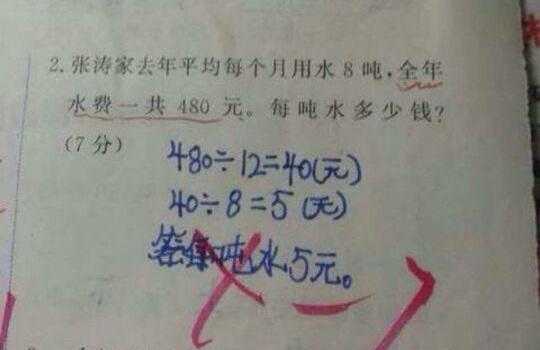 2.张涛家去年平均每个月用水8吨,全年
水费一共480元。每吨水多少钱?
(7分)
480÷12=40(元)
40÷8=5(元)
答:每吨水5元。